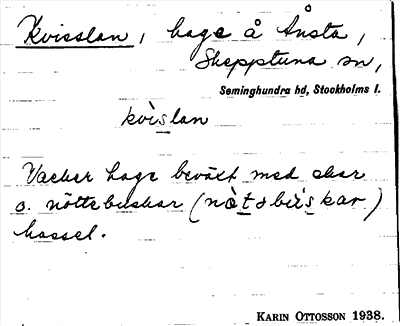 Kvisslan, hage å Ånsta,
Skepptuna sn,
Seminghundra hd, Stockholms l.
kvìslan
Vacker hage beväxt med ekar
o. nöttebuskar (
hassel.
KARIN OTTOSSON 1938.